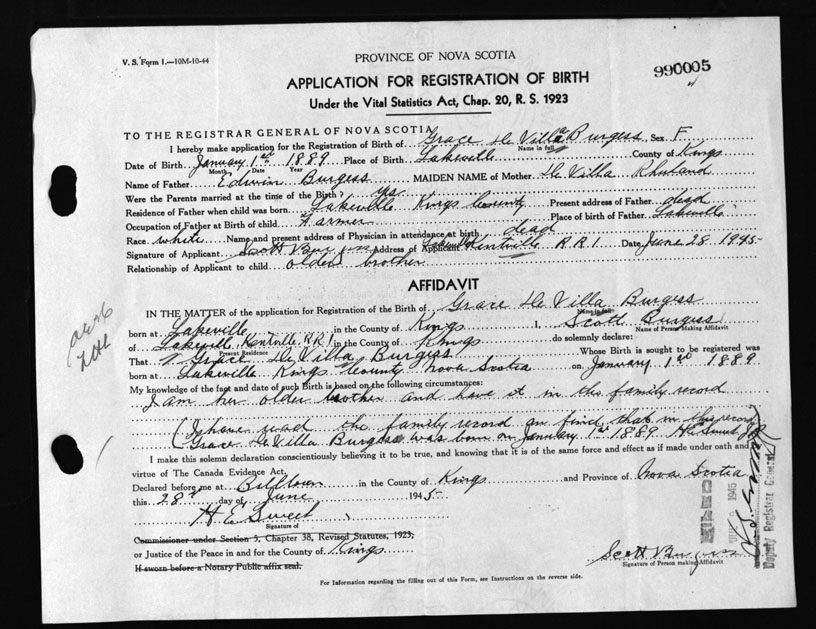 V. S. Form 1.—10M-10-44
PROVINCE OF NOVA SCOTIA
990005
APPLICATION FOR REGISTRATION OF BIRTH
Under the Vital Statistics Act, Chap. 20, R. S. 1923
TO THE REGISTRAR GENERAL OF NOVA SCOTIA
I hereby make application for the Registration of Birth of Grace De Villa Burgess Sex F
Name in full
Date of Birth January 1st 1889 Place of Birth Lakeville County of Kings
Month Date Year
Name of Father Edwin Burgess MAIDEN NAME of Mother De Villa Rhuland
Were the Parents married at the time of the Birth? yes
Residence of Father when child was born Lakeville Kings County Present Address of Father dead
Occupation of Father at Birth of child Farmer Place of birth of Father Lakeville
Race white Name and present address of Physician in attendance at birth dead
Signature of Applicant Scott Burgess Address of Applicant Lakeville Kentville R R 1 Date June 28 1945
Relationship of Applicant to child older brother
AFFIDAVIT
IN THE MATTER of the application for Registration of the Birth of Grace De Villa Burgess
Name in full
born at Lakeville in the County of Kings I, Scott Burgess
Name of Person Making Affidavit
of Lakeville Kentville, R.R.1 in the County of Kings do solemnly declare:
Present Residence
That Grace De Villa Burgess Whose Birth is sought to be registered was
born at Lakeville Kings County Nova Scotia on January 1st 1889
My knowledge of the fact and date of such Birth is based on the following circumstances:
I am her older brother and have it in the family record
(I have read the family record an find that in this record
Grace De Villa Burgess was born on January 1st 1889 H E Sweet J P
I make this solemn declaration conscientiously believing it to be true, and knowing that it is of the same force and effect as if made under oath and
virtue of The Canada Evidence Act.
Declared before me at Billtown in the County of Kings and Province of Nova Scotia
this 28th day of June 1945
H E Sweet
Signature of
Commissioner under Section 5, Chapter 38, Revised Statutes, 1923,
or Justice of the Peace in and for the County of Kings
If sworn before a Notary Public affix seal.
Scott Burgess
Signature of Person making Affidavit
For Information regarding the filling out of this Form, see Instructions on the reverse side.
FILED
1945
Deputy Registrar General